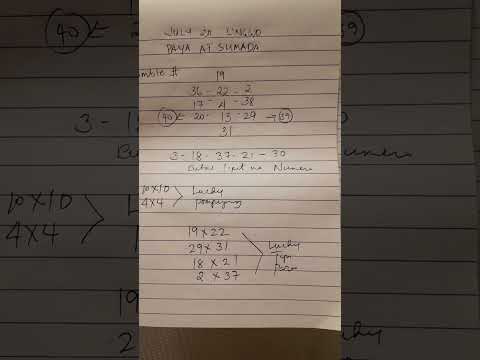 JULY 20
PAYA AT SUMADA
19
36 - 22 - 2
17 - 4 - 38
40 ← 20 - 13 - 29 → 39
31
3 - 18 - 37 - 21 - 30
na Numero
10 x 10
4 x 4
Lucky
19 x 22
29 x 31
18 x 21
2 x 37
Lucky